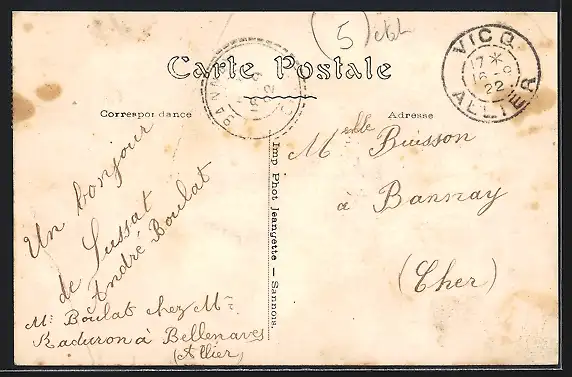 5
Carte Postale
VICQ
17 *
16-9
22
ALLIER
Correspondance
Adresse
Un bonjour
de Lussat
André Boulat
Mr Boulat chez Mr
à Bellenaves
(Allier)
Imp Phot Jeangette — Sannois.
Melle Buisson
à Bannay
(Cher)